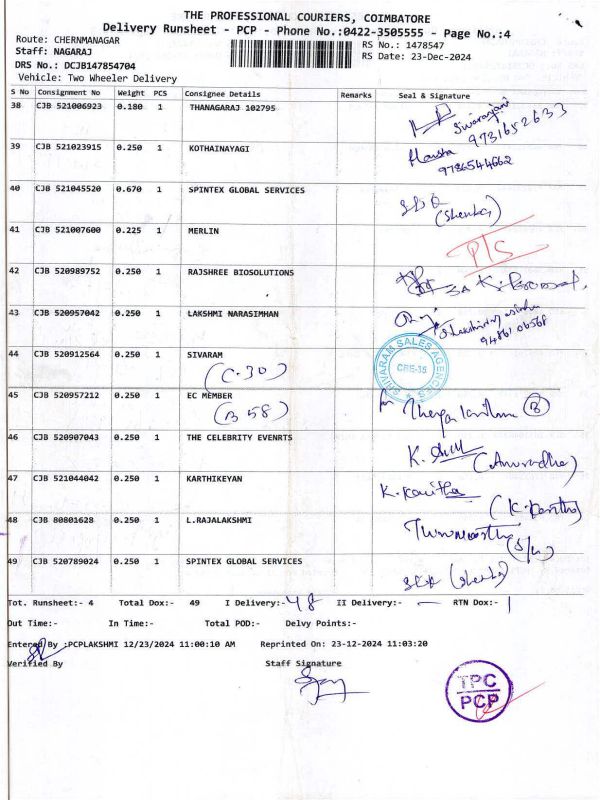 THE PROFESSIONAL COURIERS, COIMBATORE
Delivery Runsheet - PCP - Phone No.:0422-3505555 - Page No.:4
Route: CHERNMANAGAR
RS No.: 1478547
Staff: NAGARAJ
RS Date: 23-Dec-2024
DRS No.: DCJB147854704
Vehicle: Two Wheeler Delivery
S No Consignment No Weight PCS Consignee Details Remarks Seal & Signature
38 CJB 521006923 0.180 1 THANAGARAJ 102795
9731652633
39 CJB 521023915 0.250 1 KOTHAINAYAGI
9786544662
40 CJB 521045520 0.670 1 SPINTEX GLOBAL SERVICES
41 CJB 521007600 0.225 1 MERLIN
P/S
42 CJB 520989752 0.250 1 RAJSHREE BIOSOLUTIONS
43 CJB 520957042 0.250 1 LAKSHMI NARASIMHAN
SRIVARAM SALES AGENCIES
CBE-35
44 CJB 520912564 0.250 1 SIVARAM
(C-30)
45 CJB 520957212 0.250 1 EC MEMBER
(B 58)
for
46 CJB 520907043 0.250 1 THE CELEBRITY EVENRTS
(Anuradha)
47 CJB 521044042 0.250 1 KARTHIKEYAN
K. Kavitha
48 CJB 80801628 0.250 1 L.RAJALAKSHMI
49 CJB 520789024 0.250 1 SPINTEX GLOBAL SERVICES
Tot. Runsheet:- 4 Total Dox:- 49 I Delivery:- 48 II Delivery:- — RTN Dox:- 1
Out Time:- In Time:- Total POD:- Delvy Points:-
Entered By :PCPLAKSHMI 12/23/2024 11:00:10 AM Reprinted On: 23-12-2024 11:03:20
Verified By Staff Signature
TPC
PCP